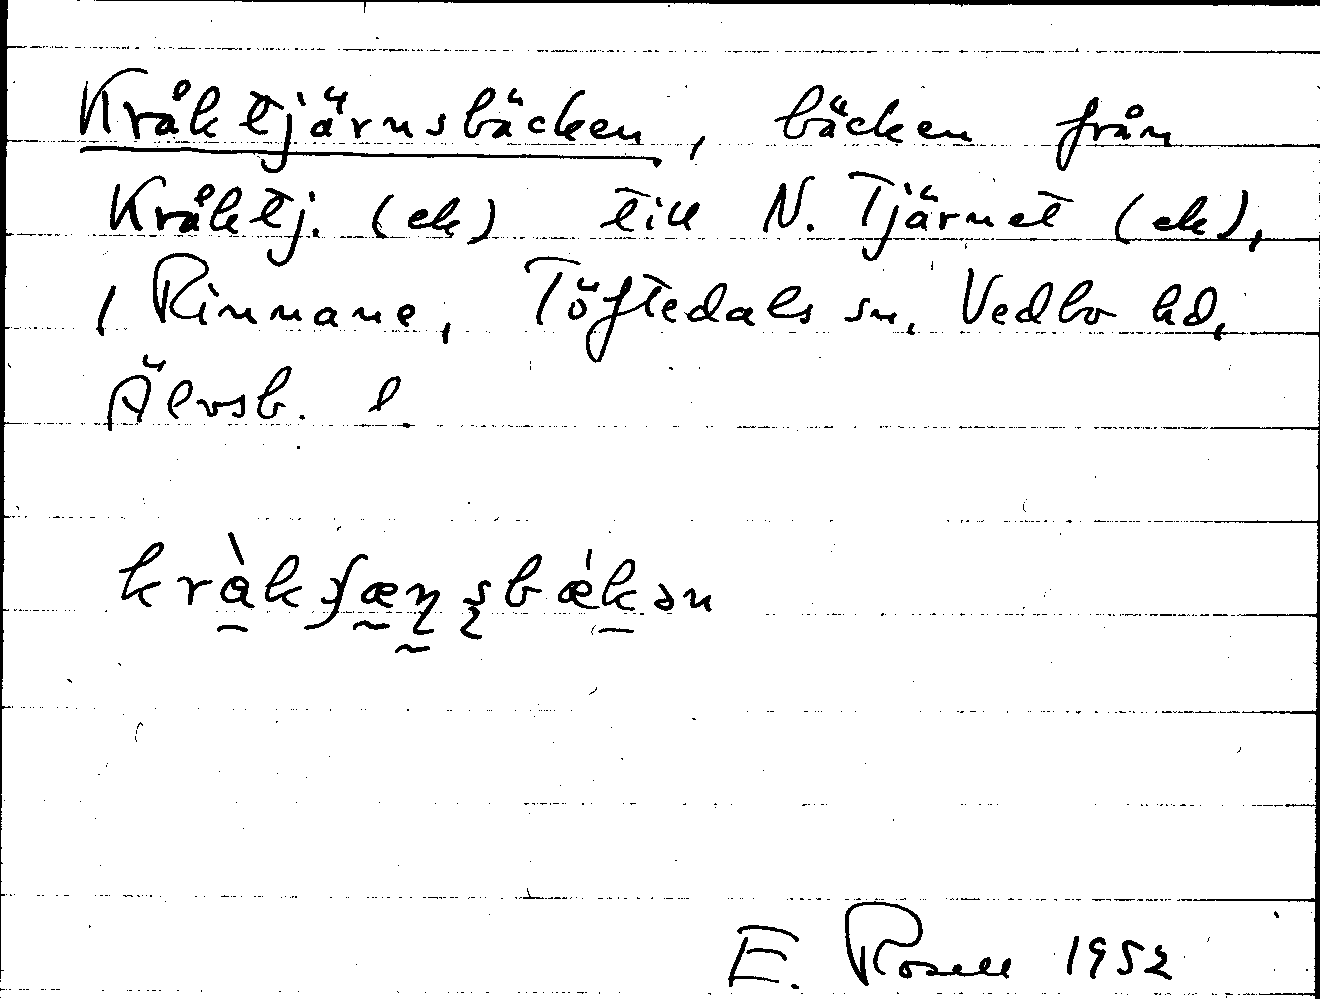 Kråktjärnsbäcken, bäcken från
Kråktj. (ek) till N. Tjärnet (ek),
/ Rinnane, Töftedals sn, Vedbo hd,
Älvsb. l.
E. Rosell 1952